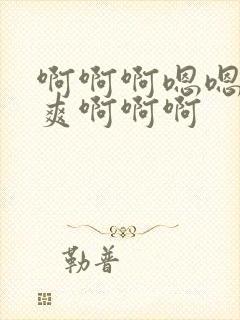 啊啊啊嗯嗯
爽啊啊啊
勒普